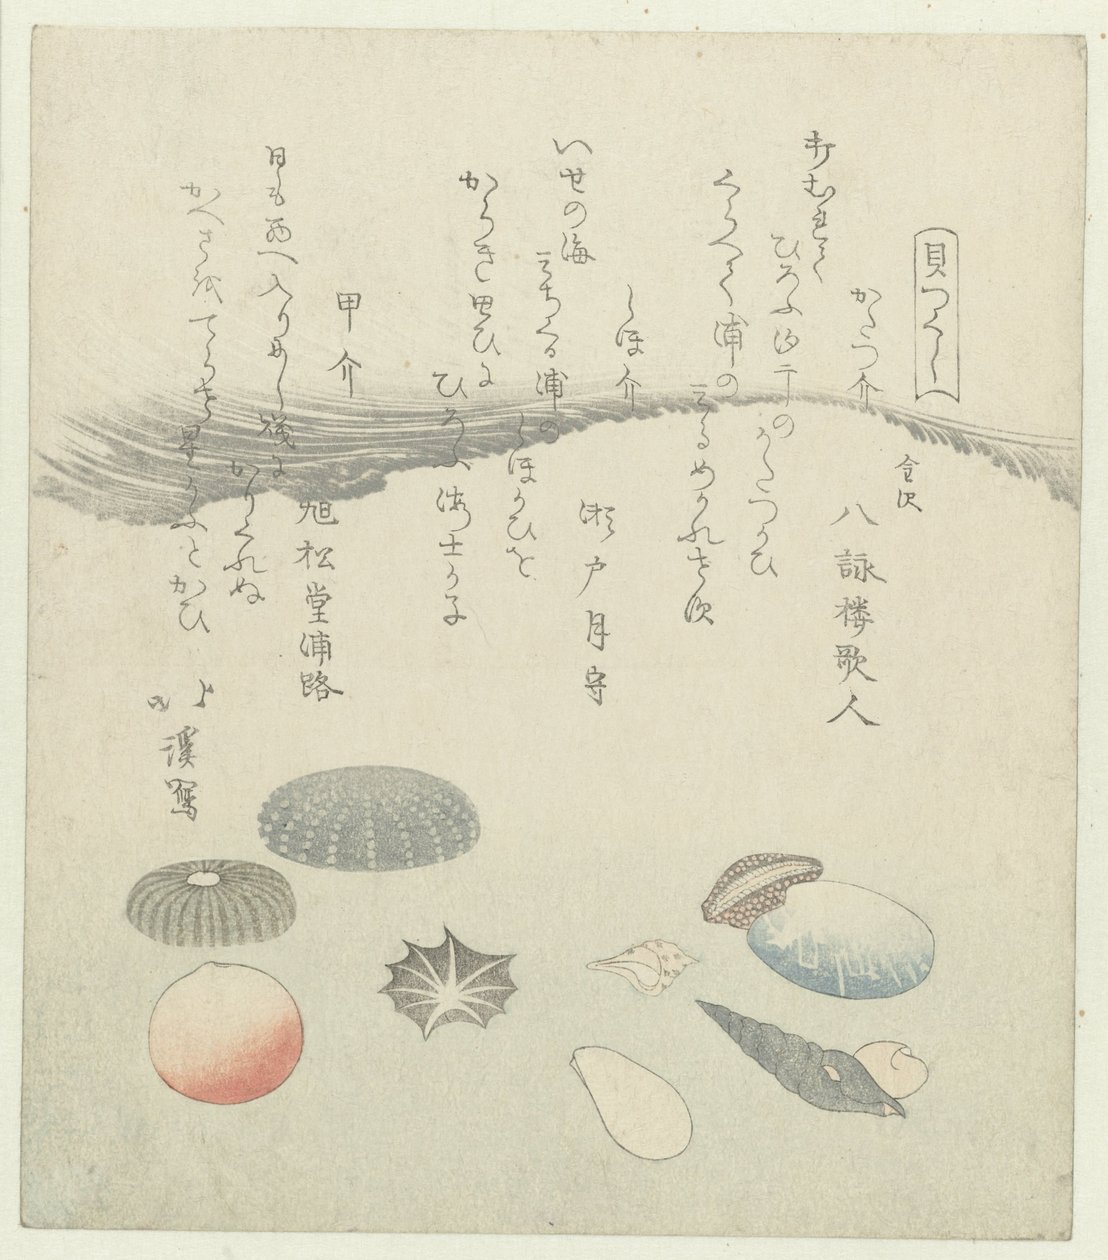 貝つくし
かたつ介
金沢
八詠楼歌人
打むれて
ひろふ汐干の
かたつかひ
くらへく浦の
見るめかれせぬ
しほ介
瀬戸月守
いせの海
みちくる浦の
しほかひを
からき思ひに
ひろふ海士か子
甲介
旭松堂浦路
日も西へ入りめし磯に
かりくれぬ
かへさ
てらせ
星かふとかひ
北溪寫